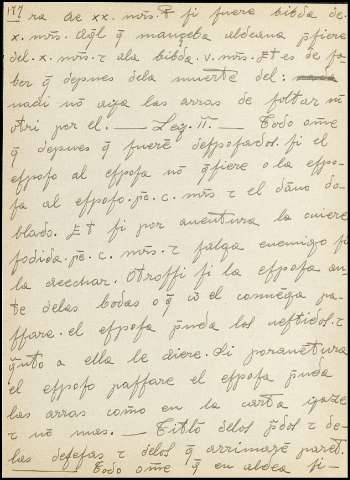 177 ra de xx. mrs. Et si fuere bibda de.
x. mrs. Aql q̃ manzeba aldeana p̃fiere
del. x. mrs. τ ala bibda. v. mrs. Et es de sa-
ber q̃ depues dela muerte del:
nadi nõ aya las arras de soltar nĩ
otri por el. — Ley. II. — Todo ome
q̃ depues q̃ fuerẽ desposados. si el
esposo al esposo nõ q̃siere o la espo-
sa al esposo. pe. c. mrs. τ el daño do-
blado. Et si por auentura la ouiere
fodida. pe. c. mrs. τ salga enemigo si
la deechar. Otrossi si la esposa an-
te delas bodas o q̃ cõ el conuẽga pa-
ssare. el esposa p̃nda los uestidos. τ
q̃nto a ella le diere. Si porauẽtura
el esposo passare el esposa p̃nda
las arras como en la carta yaze
τ nõ mas. — Titlõ delos p̃dos τ de-
las defesas τ delos q̃ arrimarẽ paret.
Todo ome q̃ en aldea si-